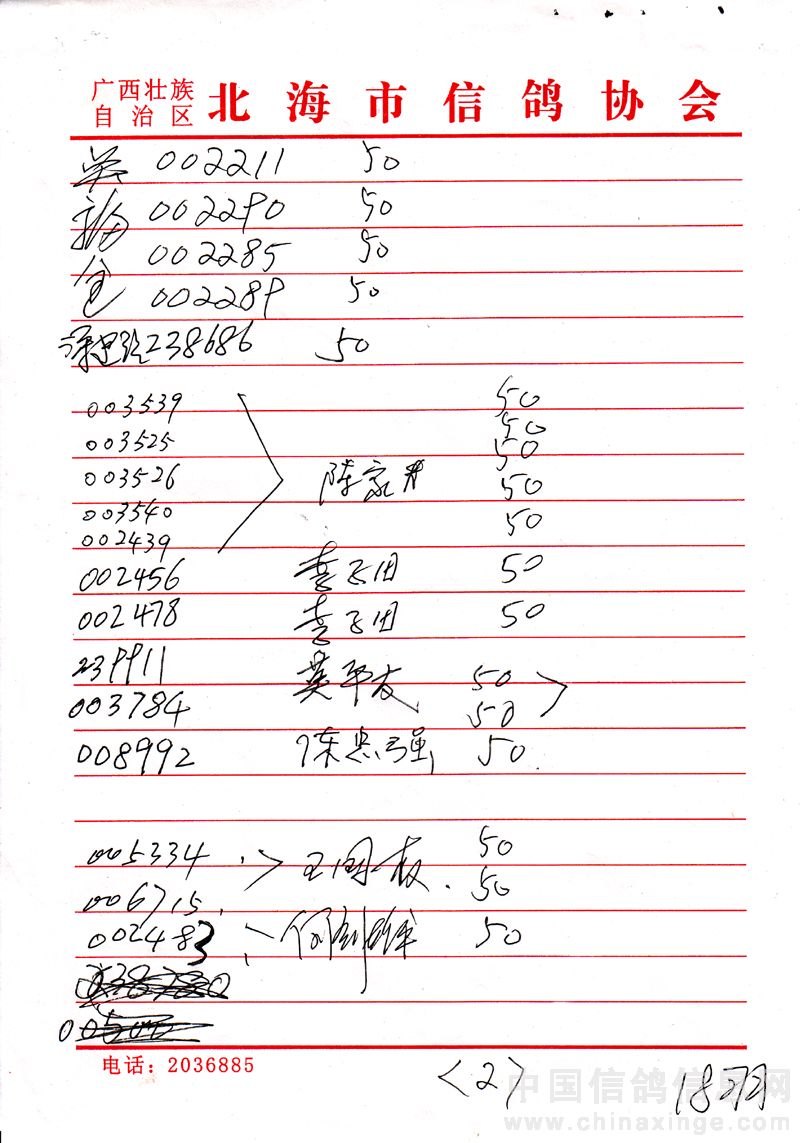 广西壮族
自治区
北海市信鸽协会
002211 50
福 002290 50
002285 50
仓 002289 50
238686 50
003539 50
003525 50
50
003526 陈家 50
003540 50
002439
002456 李玉田 50
002478 李玉田 50
239911 50
003784 50
008992 陈忠强 50
005334 王国权 50
006715 50
002483 何剑雄 50
电话：2036885
<2> 18羽
中国信鸽信息网
www.chinaxinge.com